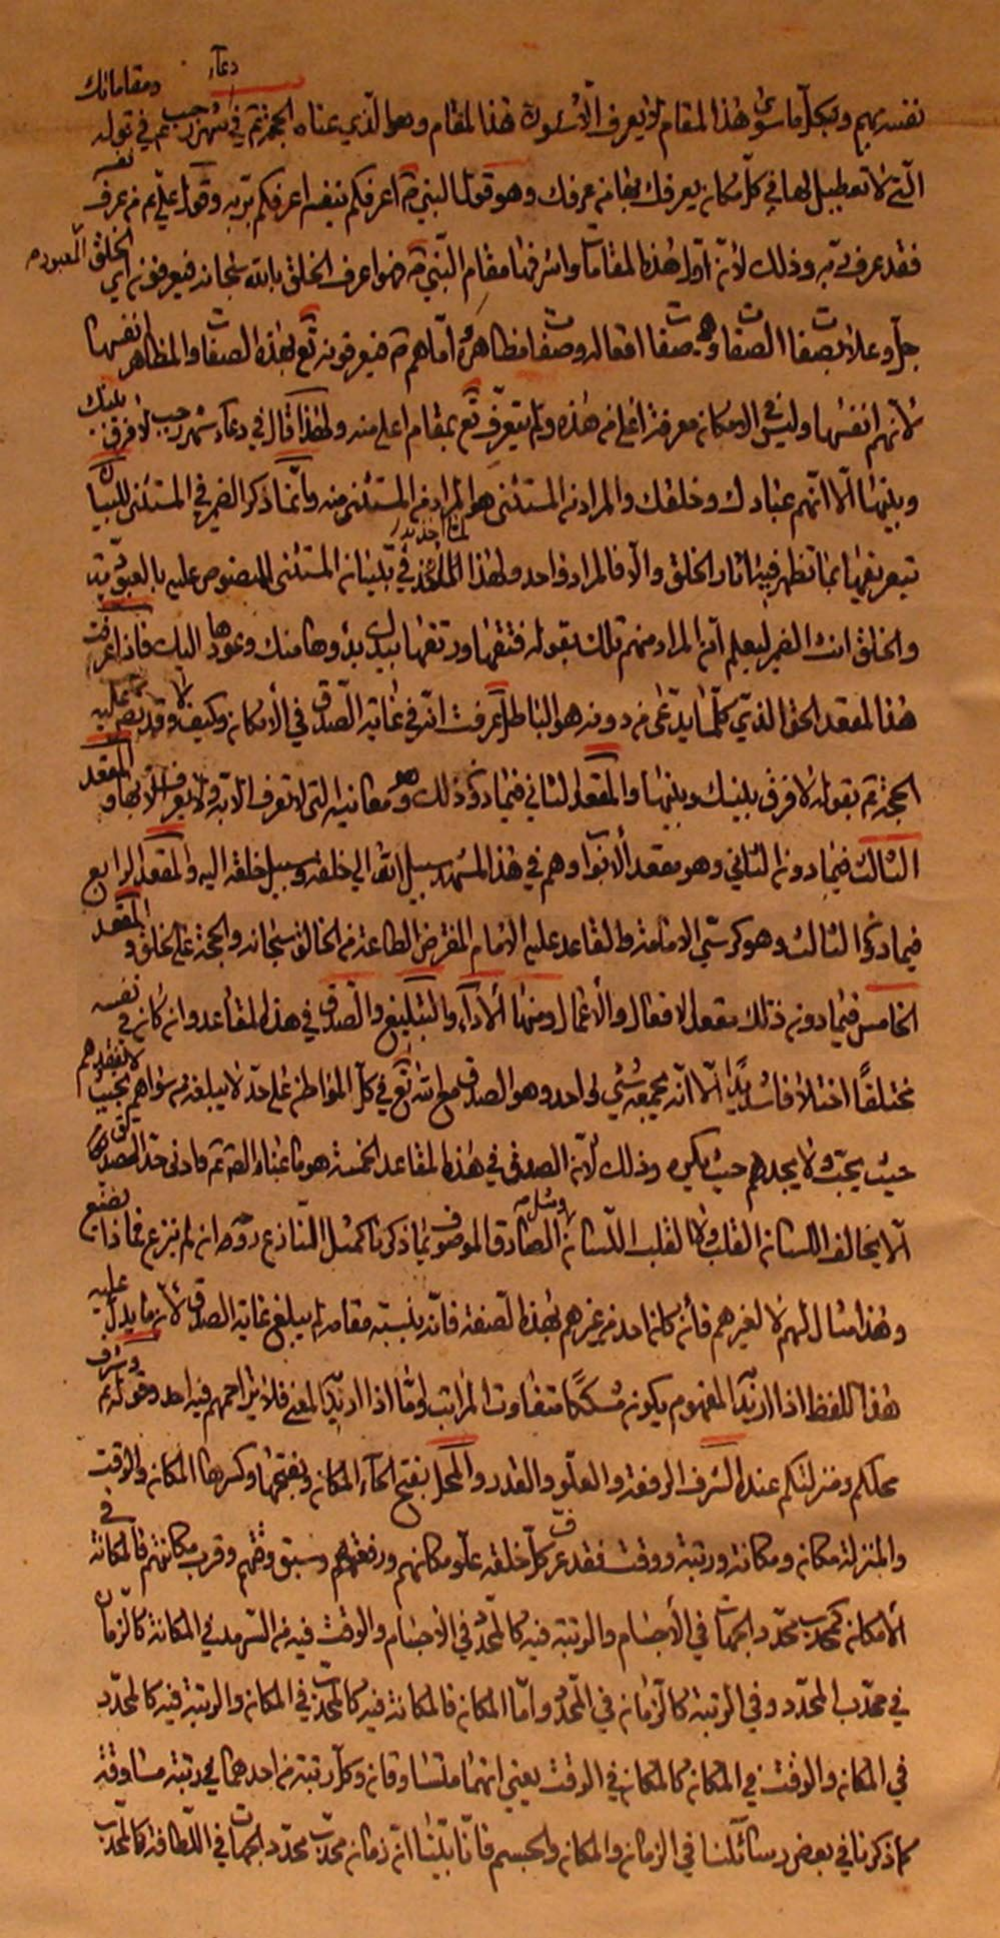 نفسه بهم وبكل ما سوى هذا المقام لا يعرف الا بسوى هذا المقام وهو الذي عناه الحجة عم في دعاء شهر رجب عم في قوله ومقاماتك
التي لا تعطيل لها في كل مكان يعرفك بها من عرفك وهو قول النبي ص اعرفكم بنفسه اعرفكم بربه وقول علي عم من عرف نفسه
فقد عرف ربه وذلك لأن اول هذا المقامات واشرفها مقام النبي ص فهو اعرف الخلق بالله سبحانه فيعرفونه اي الخلق المعبود
جل وعلا بصفات الصفات وهي صفات افعاله وصفات مظاهره اما هم عم فيعرفونه تع بهذه الصفات والمظاهر انفسها
لأنهم انفسها وليس في الامكان معرفة اعلى من هذه ولم يتعرف تع بمقام اعلى منه ولهذا قال في دعاء شهر رجب لا فرق بينك
وبينها الا انهم عبادك وخلقك والمراد من المستثنى هو المراد من المستثنى منه وانما ذكر الضمير في المستثنى للبيان
تعريفها بما تظهر فيه اثار الخلق والا فالمراد واحد ولهذا لما اخذ في تبيان المستثنى المنصوص عليه بالعبودية
والخلق انث الضمير ليعلم ان المراد منهم تلك بقوله فتقها ورتقها بيدك بدؤها منك وعودها اليك فاذا عرفت
هذا المقعد الحق الذي كلما يدعى من دونه هو الباطل عرفت انه في غاية الصدق في الأمكان وكيف لا وقد نص عليه
الحجة عم بقوله لا فرق بينك وبينها والمقعد الثاني فيما دون ذلك وهو معانيه التي لا تعرف الا به ولا يعرف الا بها والمقعد
الثالث فيما دون الثاني وهو مقعد الأبواب وهم في هذا المشهد سبيل الله الى خلقه وسبيل خلقه اليه والمقعد الرابع
فيما دون الثالث وهو كرسي الامامة والقاعد عليه الامام المفترض الطاعة من الخالق سبحانه والحجة على الخلق والمقعد
الخامس فيما دون ذلك مقعد الافعال والأعمال ومنها الأداء والتبليغ والصدق في هذه المقاعد وان كان في نفسه
مختلفًا اختلافا شديدًا الا انه يجمعه شيء واحد وهو الصدق مع الله تع في كل المواطن على حد لا يبلغه من سواهم بحيث لا يفقدهم
حيث يحب ولا يجدهم حيث يكره وذلك لأن الصدق في هذه المقاعد الخمسة هو ما عناه الص عم فادنى حد الصدق
ألا يخالف اللسان القلب ولا القلب اللسان ومثل الصادق الموصوف بما ذكرنا كمثل النازع روحه ان لم ينزع فماذا يصنع
وهذا مثال لهم لا لغيرهم فأن كان احد من غيرهم بهذه الصفة فانه بنسبة مقامه لم يبلغ غاية الصدق لأن ما يدل عليه
هذا اللفظ اذا اريد المفهوم يكون مشككا متفاوت المراتب واما اذا اريد المعنى فلا يزاحمهم فيه احد وقوله عم وشرف
محلكم ومنزلتكم عنده الشرف الرفعة والعلو والقدر والمحل بفتح الحاء المكان وبفتحها وكسرها المكان والوقت
والمنزلة مكان ومكانة ورتبة ووقت فقد عرف كل خلقه علو مكانهم ورفعتهم وسبق وقتهم وقرب مكانتهم فالمكانة في
الأمكان كمحدب محدد الجهات في الأجسام والرتبة فيه كالمحدد في الأجسام والوقت فيه من السرمد في المكانة كالزمان
في محدب المحدد وفي الرتبة كالزمان في المحدد واما المكان فالمكانة فيه كالمحدب في المكان والرتبة فيه كالمحدد
في المكان والوقت في المكان كالمكان في الوقت يعني انهما متساوقان وكل رتبة من احدهما في رتبة مساوقة
كما ذكرنا في بعض رسائلنا في الزمان والمكان والجسم فانا بينا ان زمان محدب محدد الجهات في اللطافة كالمحدب